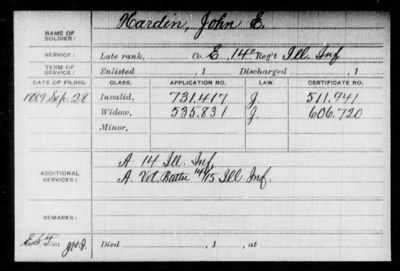 NAME OF SOLDIER: Hardin, John E.
SERVICE: Late rank, Co. E, 14" Reg't Ill. Inf
TERM OF SERVICE: Enlisted , 1 Discharged , 1
DATE OF FILING. CLASS. APPLICATION NO. LAW. CERTIFICATE NO.
1889 Sep. 28 Invalid, 731.417 J. 511.941
Widow, 535.831 J. 606.720
Minor,
A 14 Ill. Inf.
ADDITIONAL SERVICES: A. Vet. Battn 14/15 Ill. Inf.
REMARKS:
Died , 1 , at